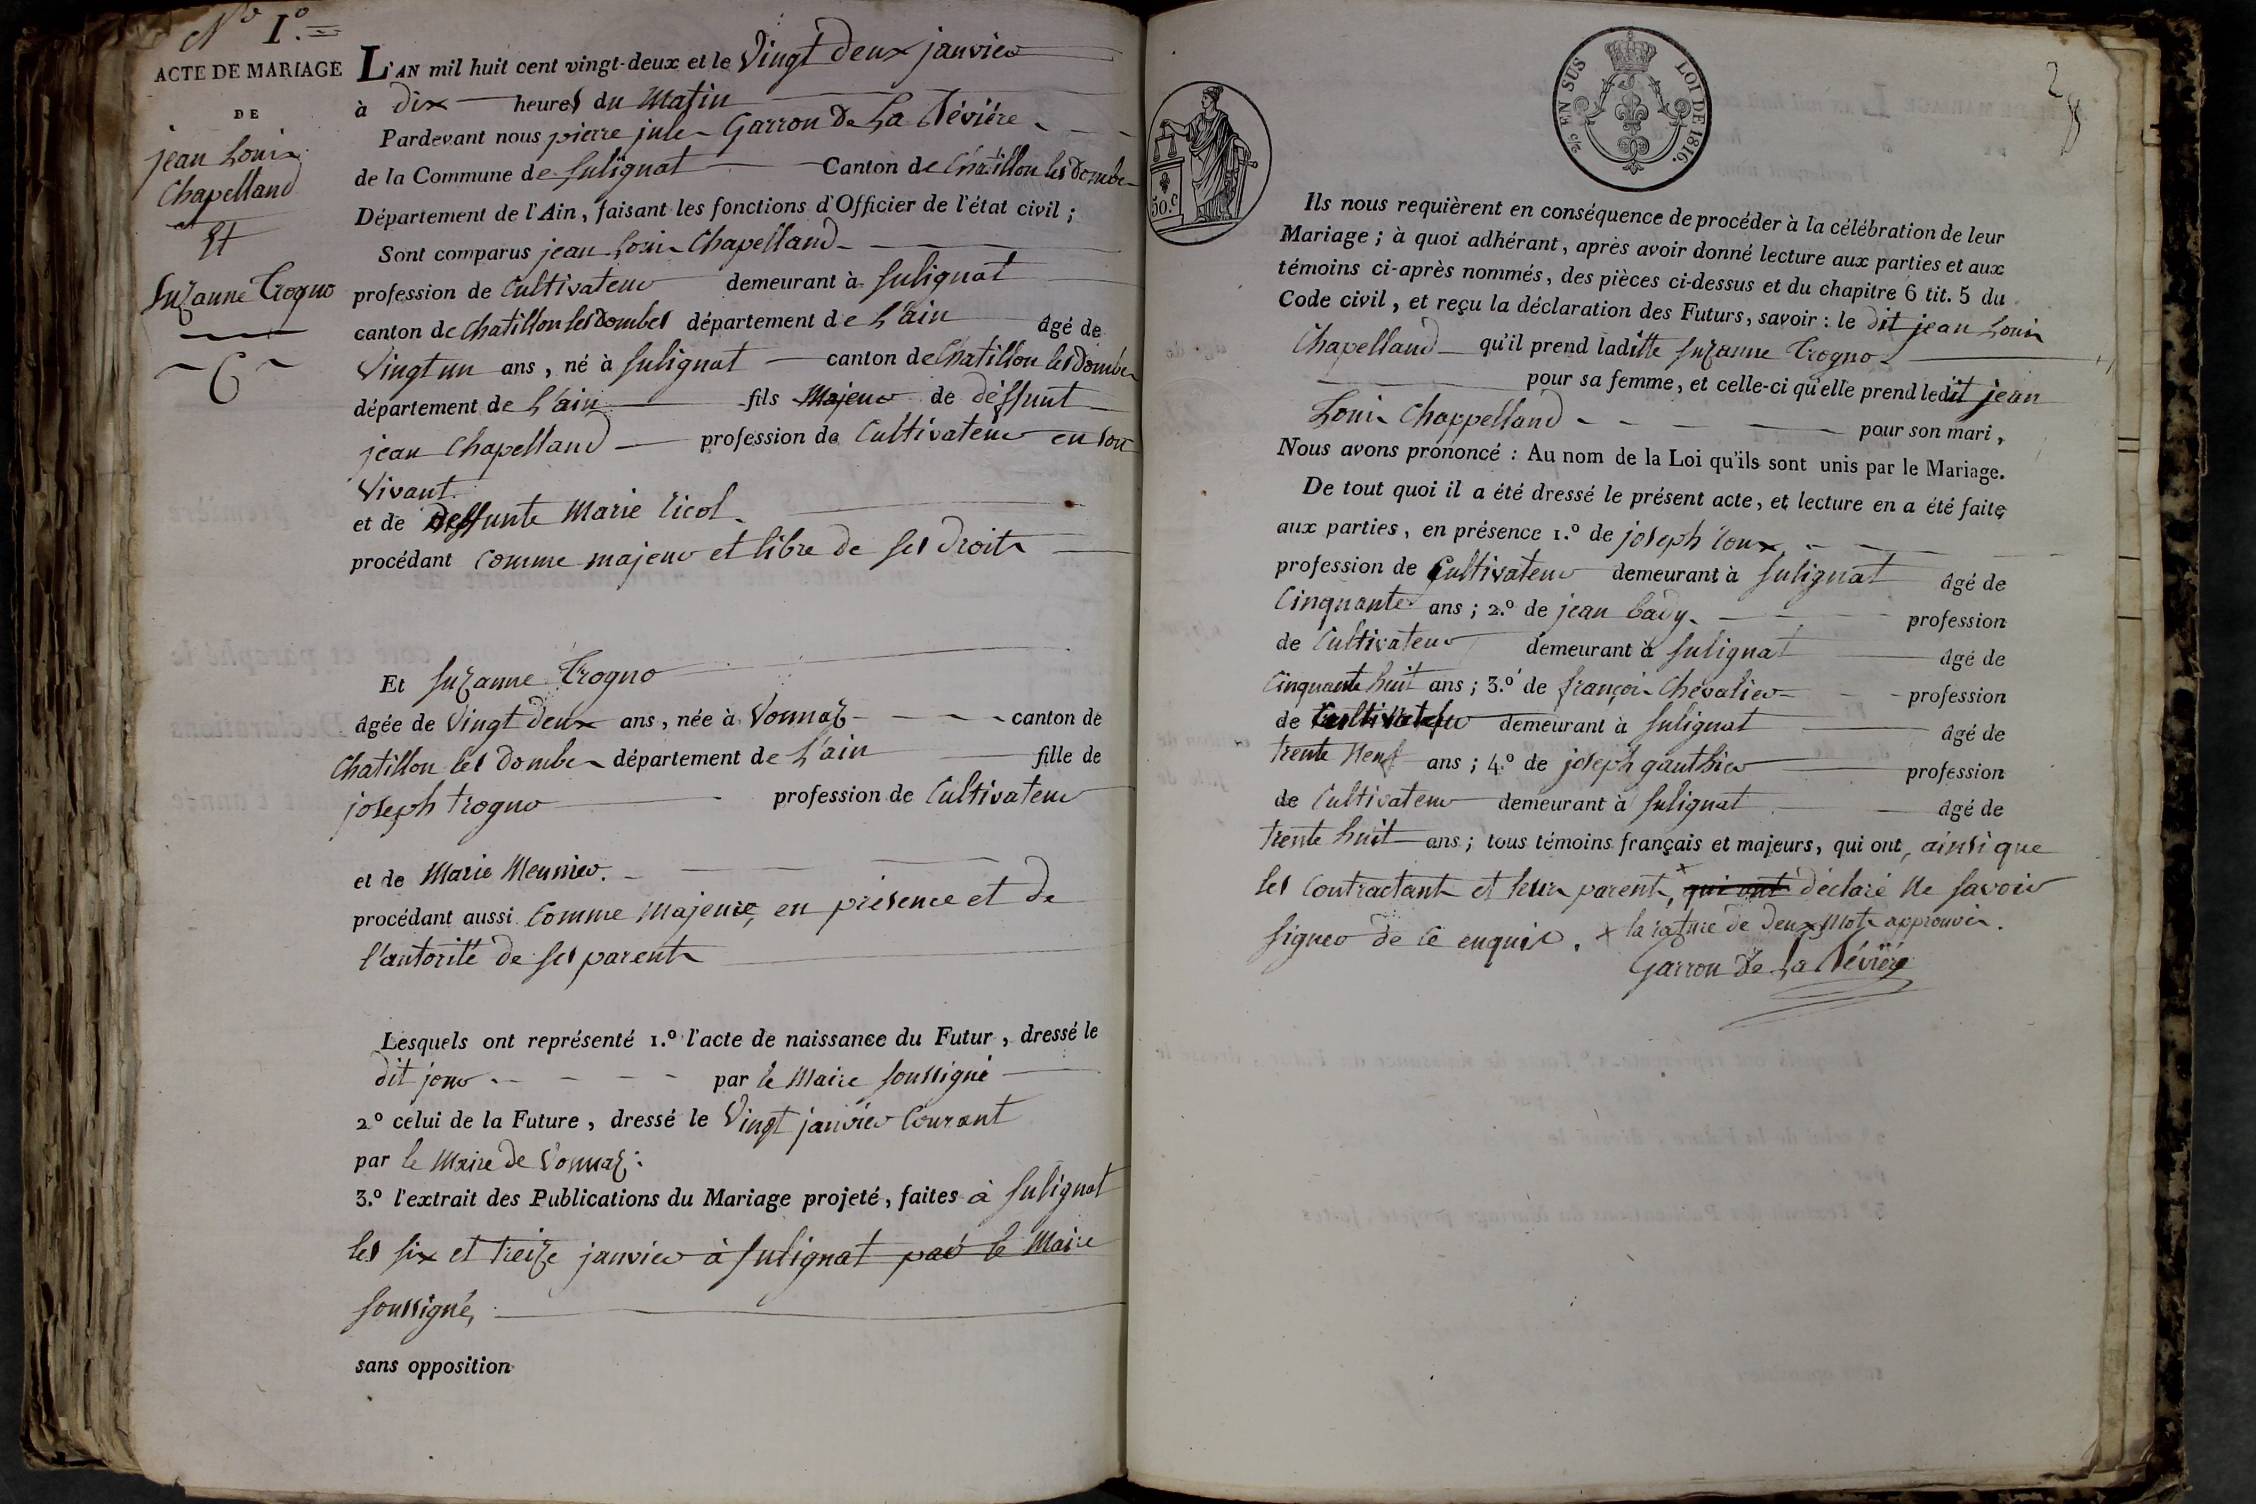 N.o 1.o
ACTE DE MARIAGE
DE
jean Louis
Chapelland
Et
Suzanne Trogno
L'AN mil huit cent vingt-deux et le Vingt deux janvier
à dix heures du Matin
Pardevant nous pierre jules Garron De La Bévière
de la Commune de Sulignat Canton de Chatillon les Dombes
Département de l'Ain, faisant les fonctions d'Officier de l'état civil ;
Sont comparus jean Louis Chapelland
profession de Cultivateur demeurant à Sulignat
canton de Chatillon les Dombes département de L'ain âgé de
Vingt un ans, né à Sulignat canton de Chatillon les Dombes
département de L'ain fils Majeur de deffunt
jean Chapelland profession de Cultivateur en son
Vivant.
et de deffunte Marie Ricol
procédant comme majeur et libre de ses droits
Et Suzanne Trogno
âgée de Vingt deux ans, née à Vonnaz canton de
Chatillon les Dombes département de L'ain fille de
joseph trogno profession de Cultivateur
et de Marie Meunier.
procédant aussi Comme Majeure, en présence et de
l'autorité de ses parents
Lesquels ont représenté 1.o l'acte de naissance du Futur, dressé le
dit jour par le Maire soussigné
2o celui de la Future, dressé le Vingt janvier Courant
par le Maire de Vonnaz.
3.o l'extrait des Publications du Mariage projeté, faites à Sulignat
les six et treize janvier à Sulignat par le Maire
soussigné,
sans opposition
EN SUS
LOI DE 1816.
50.c
2
Ils nous requièrent en conséquence de procéder à la célébration de leur
Mariage ; à quoi adhérant, après avoir donné lecture aux parties et aux
témoins ci-après nommés, des pièces ci-dessus et du chapitre 6 tit. 5 du
Code civil, et reçu la déclaration des Futurs, savoir : le dit jean Louis
Chapelland qu'il prend laditte Suzanne Trogno
pour sa femme, et celle-ci qu'elle prend ledit jean
Louis Chappelland pour son mari,
Nous avons prononcé : Au nom de la Loi qu'ils sont unis par le Mariage.
De tout quoi il a été dressé le présent acte, et lecture en a été faite
aux parties, en présence 1.o de joseph roux
profession de Cultivateur demeurant à Sulignat âgé de
Cinquante ans ; 2.o de jean bady profession
de Cultivateur demeurant à Sulignat âgé de
Cinquante huit ans ; 3.o de françois Chevalier profession
de Cultivateur demeurant à Sulignat âgé de
trente neuf ans ; 4.o de joseph gauthier profession
de Cultivateur demeurant à Sulignat âgé de
trente huit ans ; tous témoins français et majeurs, qui ont, ainsi que
les Contractants et leurs parents, qui ont déclaré Ne savoir
signer de ce enquis. x la rature de deux Mots approuvée.
Garron De La Bévière